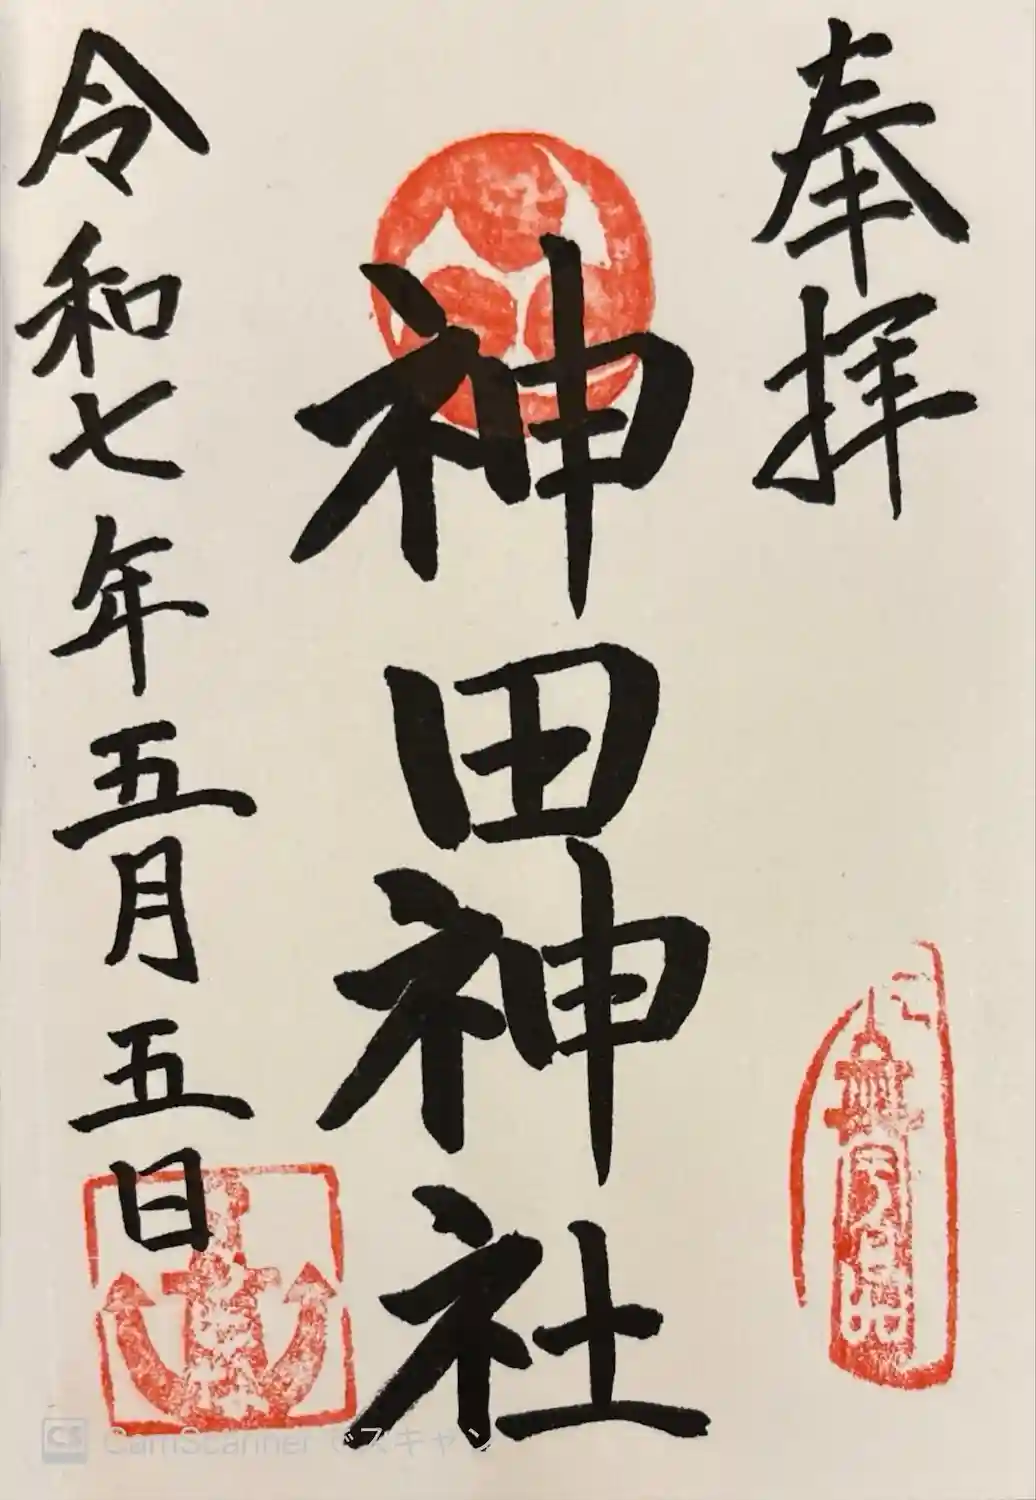 奉拝
神田神社
令和七年五月五日
CS CamScanner でスキャン